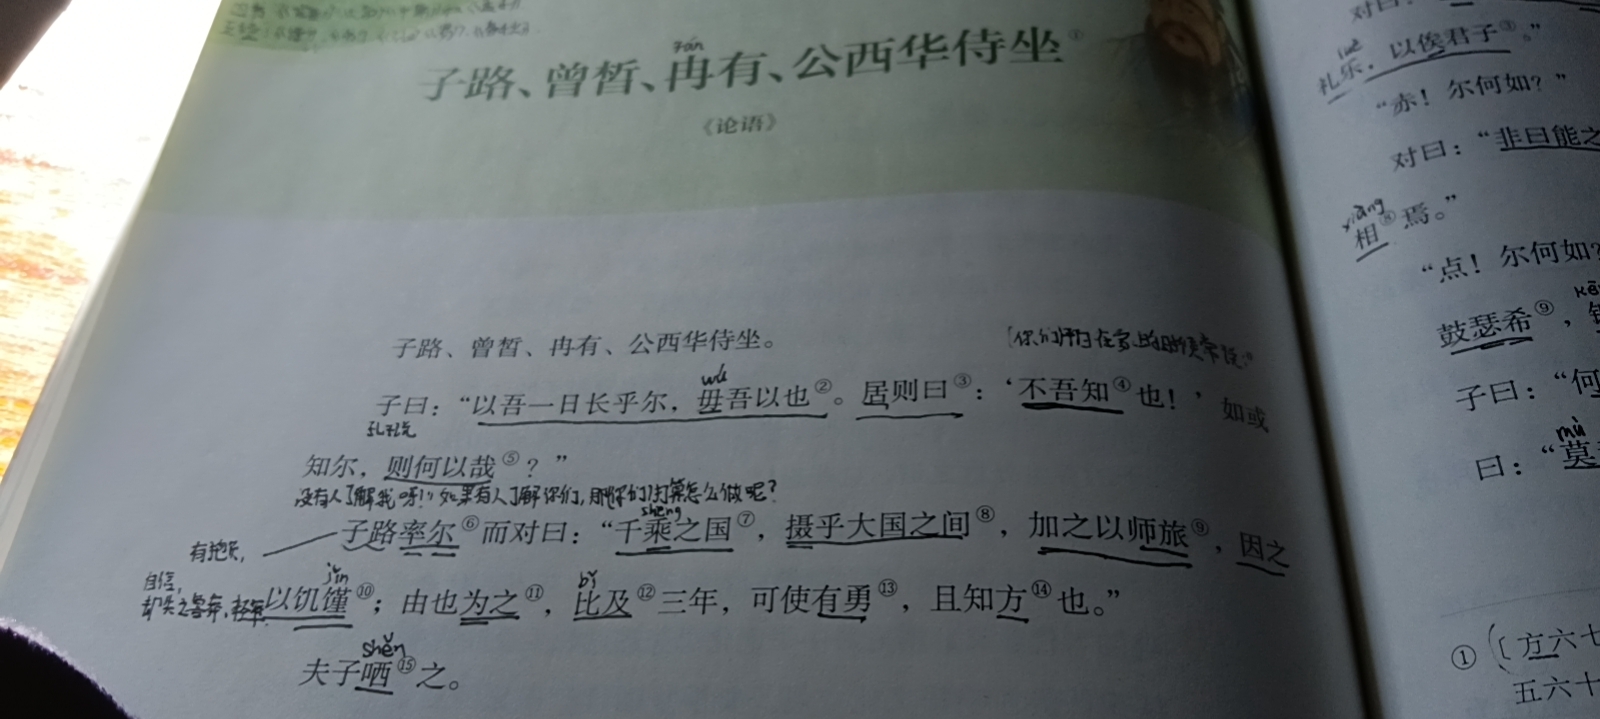 rǎn
子路、曾皙、冉有、公西华侍坐①
《论语》
子路、曾皙、冉有、公西华侍坐。
wú
子曰：“以吾一日长乎尔，毋吾以也②。居则曰③：‘不吾知④也！’如或
孔子说
知尔，则何以哉⑤？”
没有人了解我呀！如果有人了解你们，那你们打算怎么做呢？
shèng
子路率尔⑥而对曰：“千乘之国⑦，摄乎大国之间⑧，加之以师旅⑨，因之
有抱负，
自信，
jǐn
bǐ
以饥馑⑩；由也为之⑪，比及⑫三年，可使有勇⑬，且知方⑭也。”
shěn
夫子哂⑮之。
对曰：
礼乐，以俟君子⑤。”
“赤！尔何如？”
对曰：“非曰能之
xiàng
相⑧焉。”
“点！尔何如？
鼓瑟希⑨，
子曰：“何
mù
曰：“莫
①〔方六七
五六十